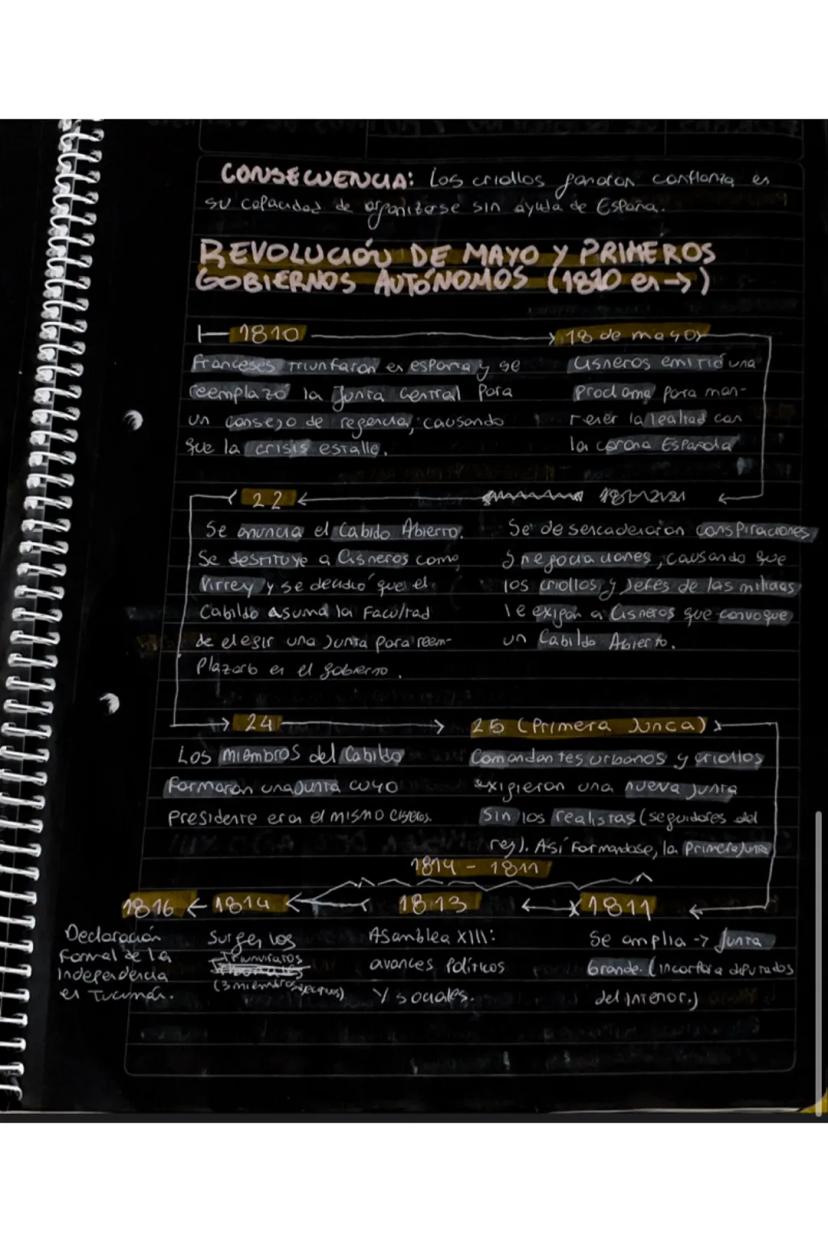 CONSECUENCIA: Los criollos ganaron confianza en
su capacidad de organizarse sin ayuda de España.
REVOLUCIÓN DE MAYO Y PRIMEROS
GOBIERNOS AUTÓNOMOS (1810 en →)
1810 → 18 de mayo
Franceses triunfaron en españa y se
reemplazo la Junta Central Para
un consejo de regencia, causando
que la crisis estalle.
Cisneros emitió una
Proclama para man-
tener la lealtad con
la corona Española
22 ←
Se anuncia el Cabido Abierto.
Se destituye a Cisneros como
Virrey y se decidió que el
Cabildo asuma la Facultad
de elegir una Junta para reem-
plazarlo en el gobierno.
Se desencadenaron conspiraciones
y negociaciones, causando que
los criollos y Jefes de las milicias
le exijan a Cisneros que convoque
un Cabildo Abierto.
→ 24 → 25 (Primera Junta)
Los miembros del Cabildo
Formaron una Junta cuyo
Presidente era el mismo Cisneros.
Comandantes urbanos y criollos
exigieron una nueva Junta
sin los realistas (seguidores del
rey). Así formandose, la Primera Junta
1814 - 1811
1816 ← 1814 ← 1813 ← 1811 ←
Declaración
Formal de la
Independencia
en Tucumán.
Surgen los
Triunviratos
(3 miembros)
Asamblea XIII:
avances Políticos
Y sociales.
Se amplia → Junta
Grande. (incorpora diputados
del interior.)